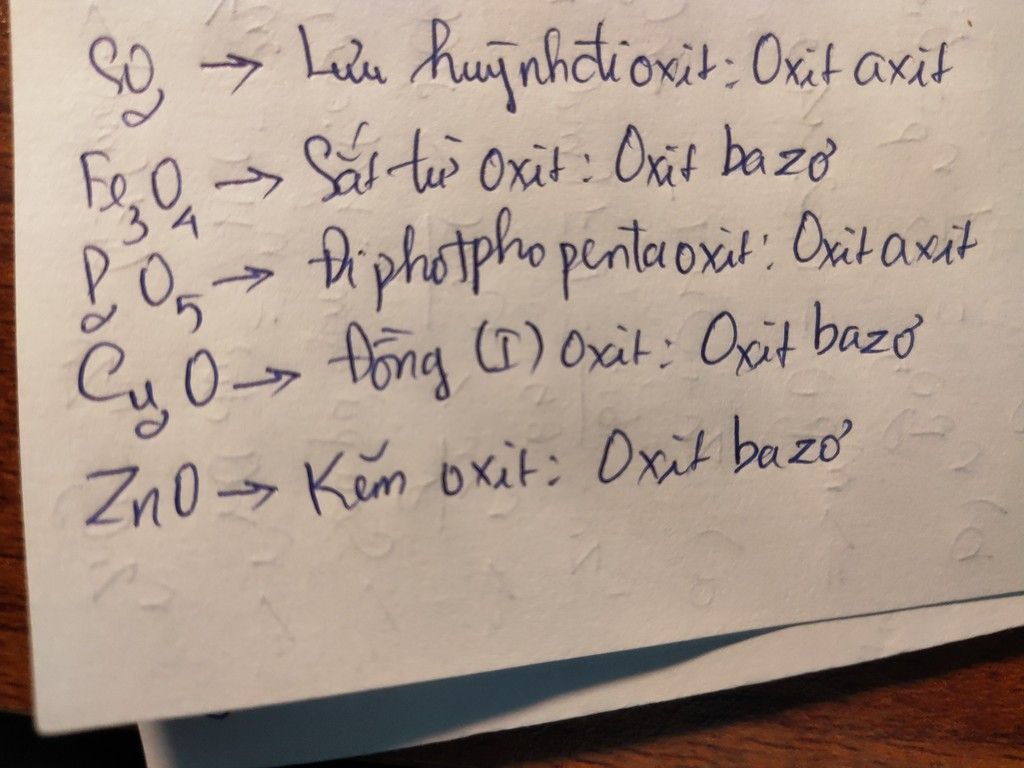 SO₂ → Lưu huỳnh đioxit: Oxit axit
Fe₃O₄ → Sắt từ oxit: Oxit bazơ
P₂O₅ → Điphotpho pentaoxit: Oxit axit
Cu₂O → Đồng (I) oxit: Oxit bazơ
ZnO → Kẽm oxit: Oxit bazơ